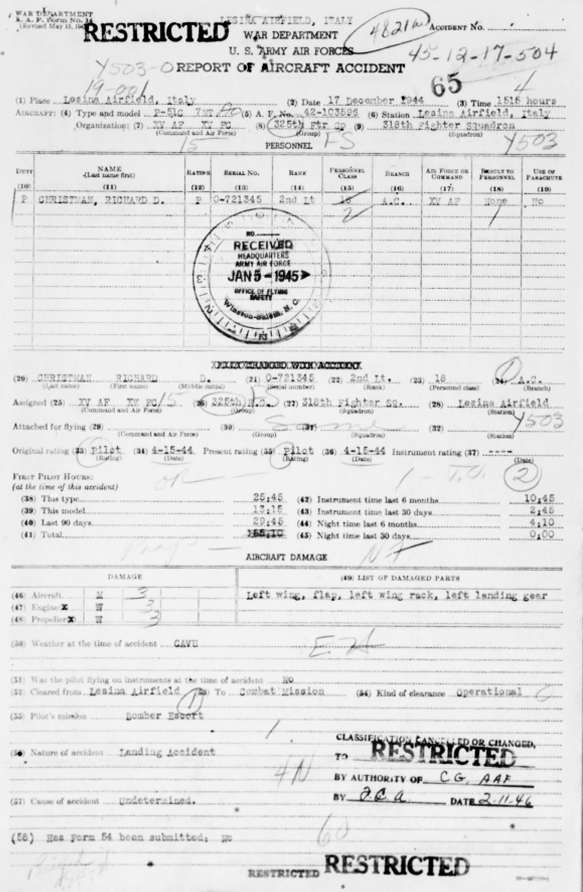 WAR DEPARTMENT
A. A. F. Form No. 14
(Revised May 15, 19
RESTRICTED
LESINA AIRFIELD, ITALY
WAR DEPARTMENT
U. S. ARMY AIR FORCES
ACCIDENT No.
45-12-17-504
Y503-O REPORT OF AIRCRAFT ACCIDENT
65
4
(1) Place Lesina Airfield, Italy (2) Date 17 December 1944 (3) Time 1515 hours
AIRCRAFT: (4) Type and model P-51C (5) A. F. No. 42-103596 (6) Station Lesina Airfield, Italy
Organization: (7) XV AF XV FC (8) 325th Ftr Gp (9) 318th Fighter Squadron
(Command and Air Force) (Group) (Squadron)
15 FS Y503
PERSONNEL
DUTY NAME (Last name first) RATING SERIAL NO. RANK PERSONNEL CLASS BRANCH AIR FORCE OR COMMAND RESULT TO PERSONNEL USE OF PARACHUTE
(10) (11) (12) (13) (14) (15) (16) (17) (18) (19)
P CHRISTMAN, RICHARD D. P O-721345 2nd Lt 18 A.C. XV AF None No
2
NO.
RECEIVED
HEADQUARTERS
ARMY AIR FORCE
JAN 5 - 1945
OFFICE OF FLYING
SAFETY
Winston-Salem, N. C.
PILOT CHARGED WITH ACCIDENT
(20) CHRISTMAN RICHARD D. (21) O-721345 (22) 2nd Lt. (23) 18 (24) A.C.
(Last name) (First name) (Middle initial) (Serial number) (Rank) (Personnel class) (Branch)
Assigned (25) XV AF XV FC (26) 325th F.G. (27) 318th Fighter Sq. (28) Lesina Airfield
(Command and Air Force) (Group) (Squadron) (Station)
Y503
Attached for flying (29) (30) (31) (32)
(Command and Air Force) (Group) (Squadron) (Station)
Original rating (33) Pilot (34) 4-15-44 Present rating (35) Pilot (36) 4-15-44 Instrument rating (37) ----
(Rating) (Date) (Rating) (Date) (Date)
2
FIRST PILOT HOURS:
(at the time of this accident)
(38) This type 25:45 (42) Instrument time last 6 months 10:45
(39) This model 13:15 (43) Instrument time last 30 days 2:45
(40) Last 90 days 29:45 (44) Night time last 6 months 4:10
(41) Total (45) Night time last 30 days 0:00
AIRCRAFT DAMAGE
DAMAGE (49) LIST OF DAMAGED PARTS
(46) Aircraft M 3 Left wing, flap, left wing rack, left landing gear
(47) Engine W 3
(48) Propeller W 3
(50) Weather at the time of accident CAVU
(51) Was the pilot flying on instruments at the time of accident No
(52) Cleared from Lesina Airfield (53) To Combat Mission (54) Kind of clearance Operational
(55) Pilot's mission Bomber Escort
(56) Nature of accident Landing Accident
4N
CLASSIFICATION CANCELLED OR CHANGED,
TO RESTRICTED
BY AUTHORITY OF C.G, AAF
(57) Cause of accident Undetermined.
BY J.C.A. DATE 2-11-46
(58) Has Form 54 been submitted; No
60
RESTRICTED RESTRICTED